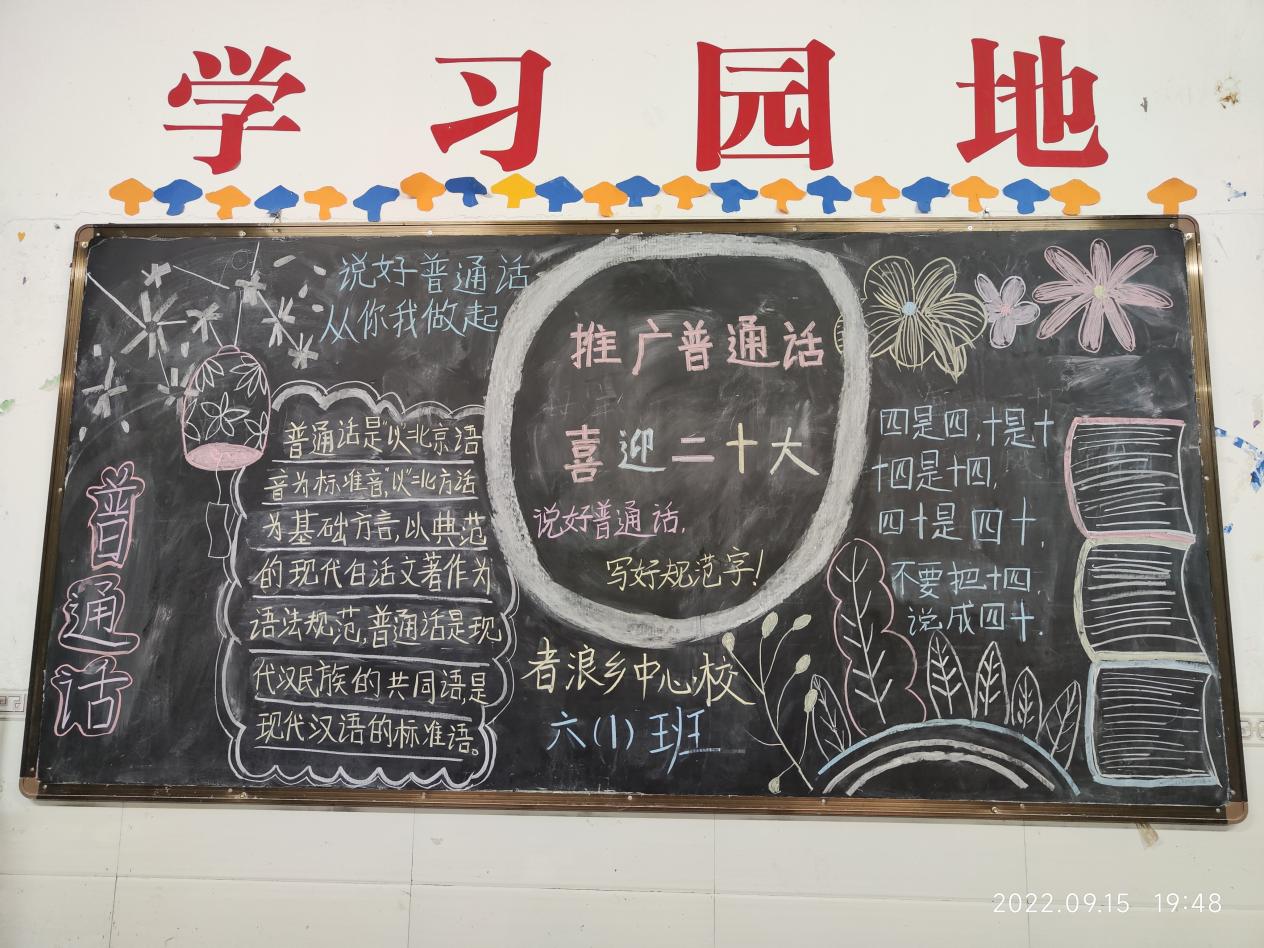 学习园地
说好普通话
从你我做起
普通话
普通话是"以"北京语
音为标准音,"以"北方话
为基础方言,以典范
的现代白话文著作为
语法规范,普通话是现
代汉民族的共同语,是
现代汉语的标准语。
推广普通话
喜迎二十大
说好普通话,
写好规范字!
者浪乡中心校
六(1)班
四是四,十是十
十四是十四,
四十是四十,
不要把十四
说成四十.
2022.09.15 19:48